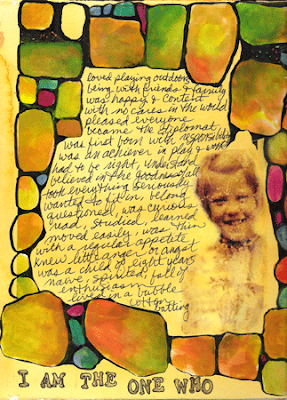 loved playing outdoors
being with friends & family
was happy & content
with no cares in the world
pleased everyone
became the diplomat
was first born with responsibility
was an achiever in play & work
had to be right, understand
believed in the goodness of all
took everything seriously
wanted to fit in, belong
questioned, was curious
read, studied, learned
moved easily, was thin
with a regular appetite
knew little anger or angst
was a child of eight years
naive, spirited, full of
enthusiasm
lived in a bubble
cotton
batting
I AM THE ONE WHO